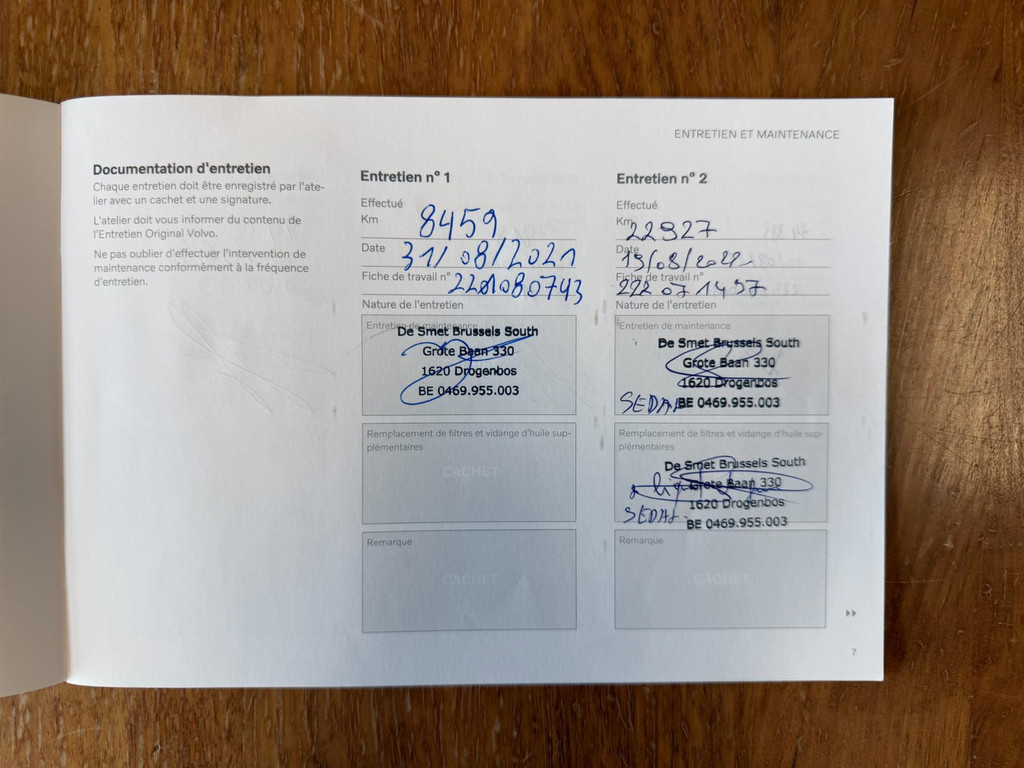 ENTRETIEN ET MAINTENANCE
Documentation d'entretien
Chaque entretien doit être enregistré par l'ate-
lier avec un cachet et une signature.
L'atelier doit vous informer du contenu de
l'Entretien Original Volvo.
Ne pas oublier d'effectuer l'intervention de
maintenance conformément à la fréquence
d'entretien.
Entretien n° 1
Effectué
Km 8459
Date 31/08/2021
Fiche de travail n°
Nature de l'entretien
Entretien de maintenance
De Smet Brussels South
Grote Baan 330
1620 Drogenbos
BE 0469.955.003
Remplacement de filtres et vidange d'huile sup-
plémentaires
CACHET
Remarque
CACHET
Entretien n° 2
Effectué
Km 22927
Date
Fiche de travail n°
Nature de l'entretien
Entretien de maintenance
De Smet Brussels South
Grote Baan 330
1620 Drogenbos
BE 0469.955.003
Remplacement de filtres et vidange d'huile sup-
plémentaires
De Smet Brussels South
Grote Baan 330
1620 Drogenbos
BE 0469.955.003
Remarque
CACHET
7